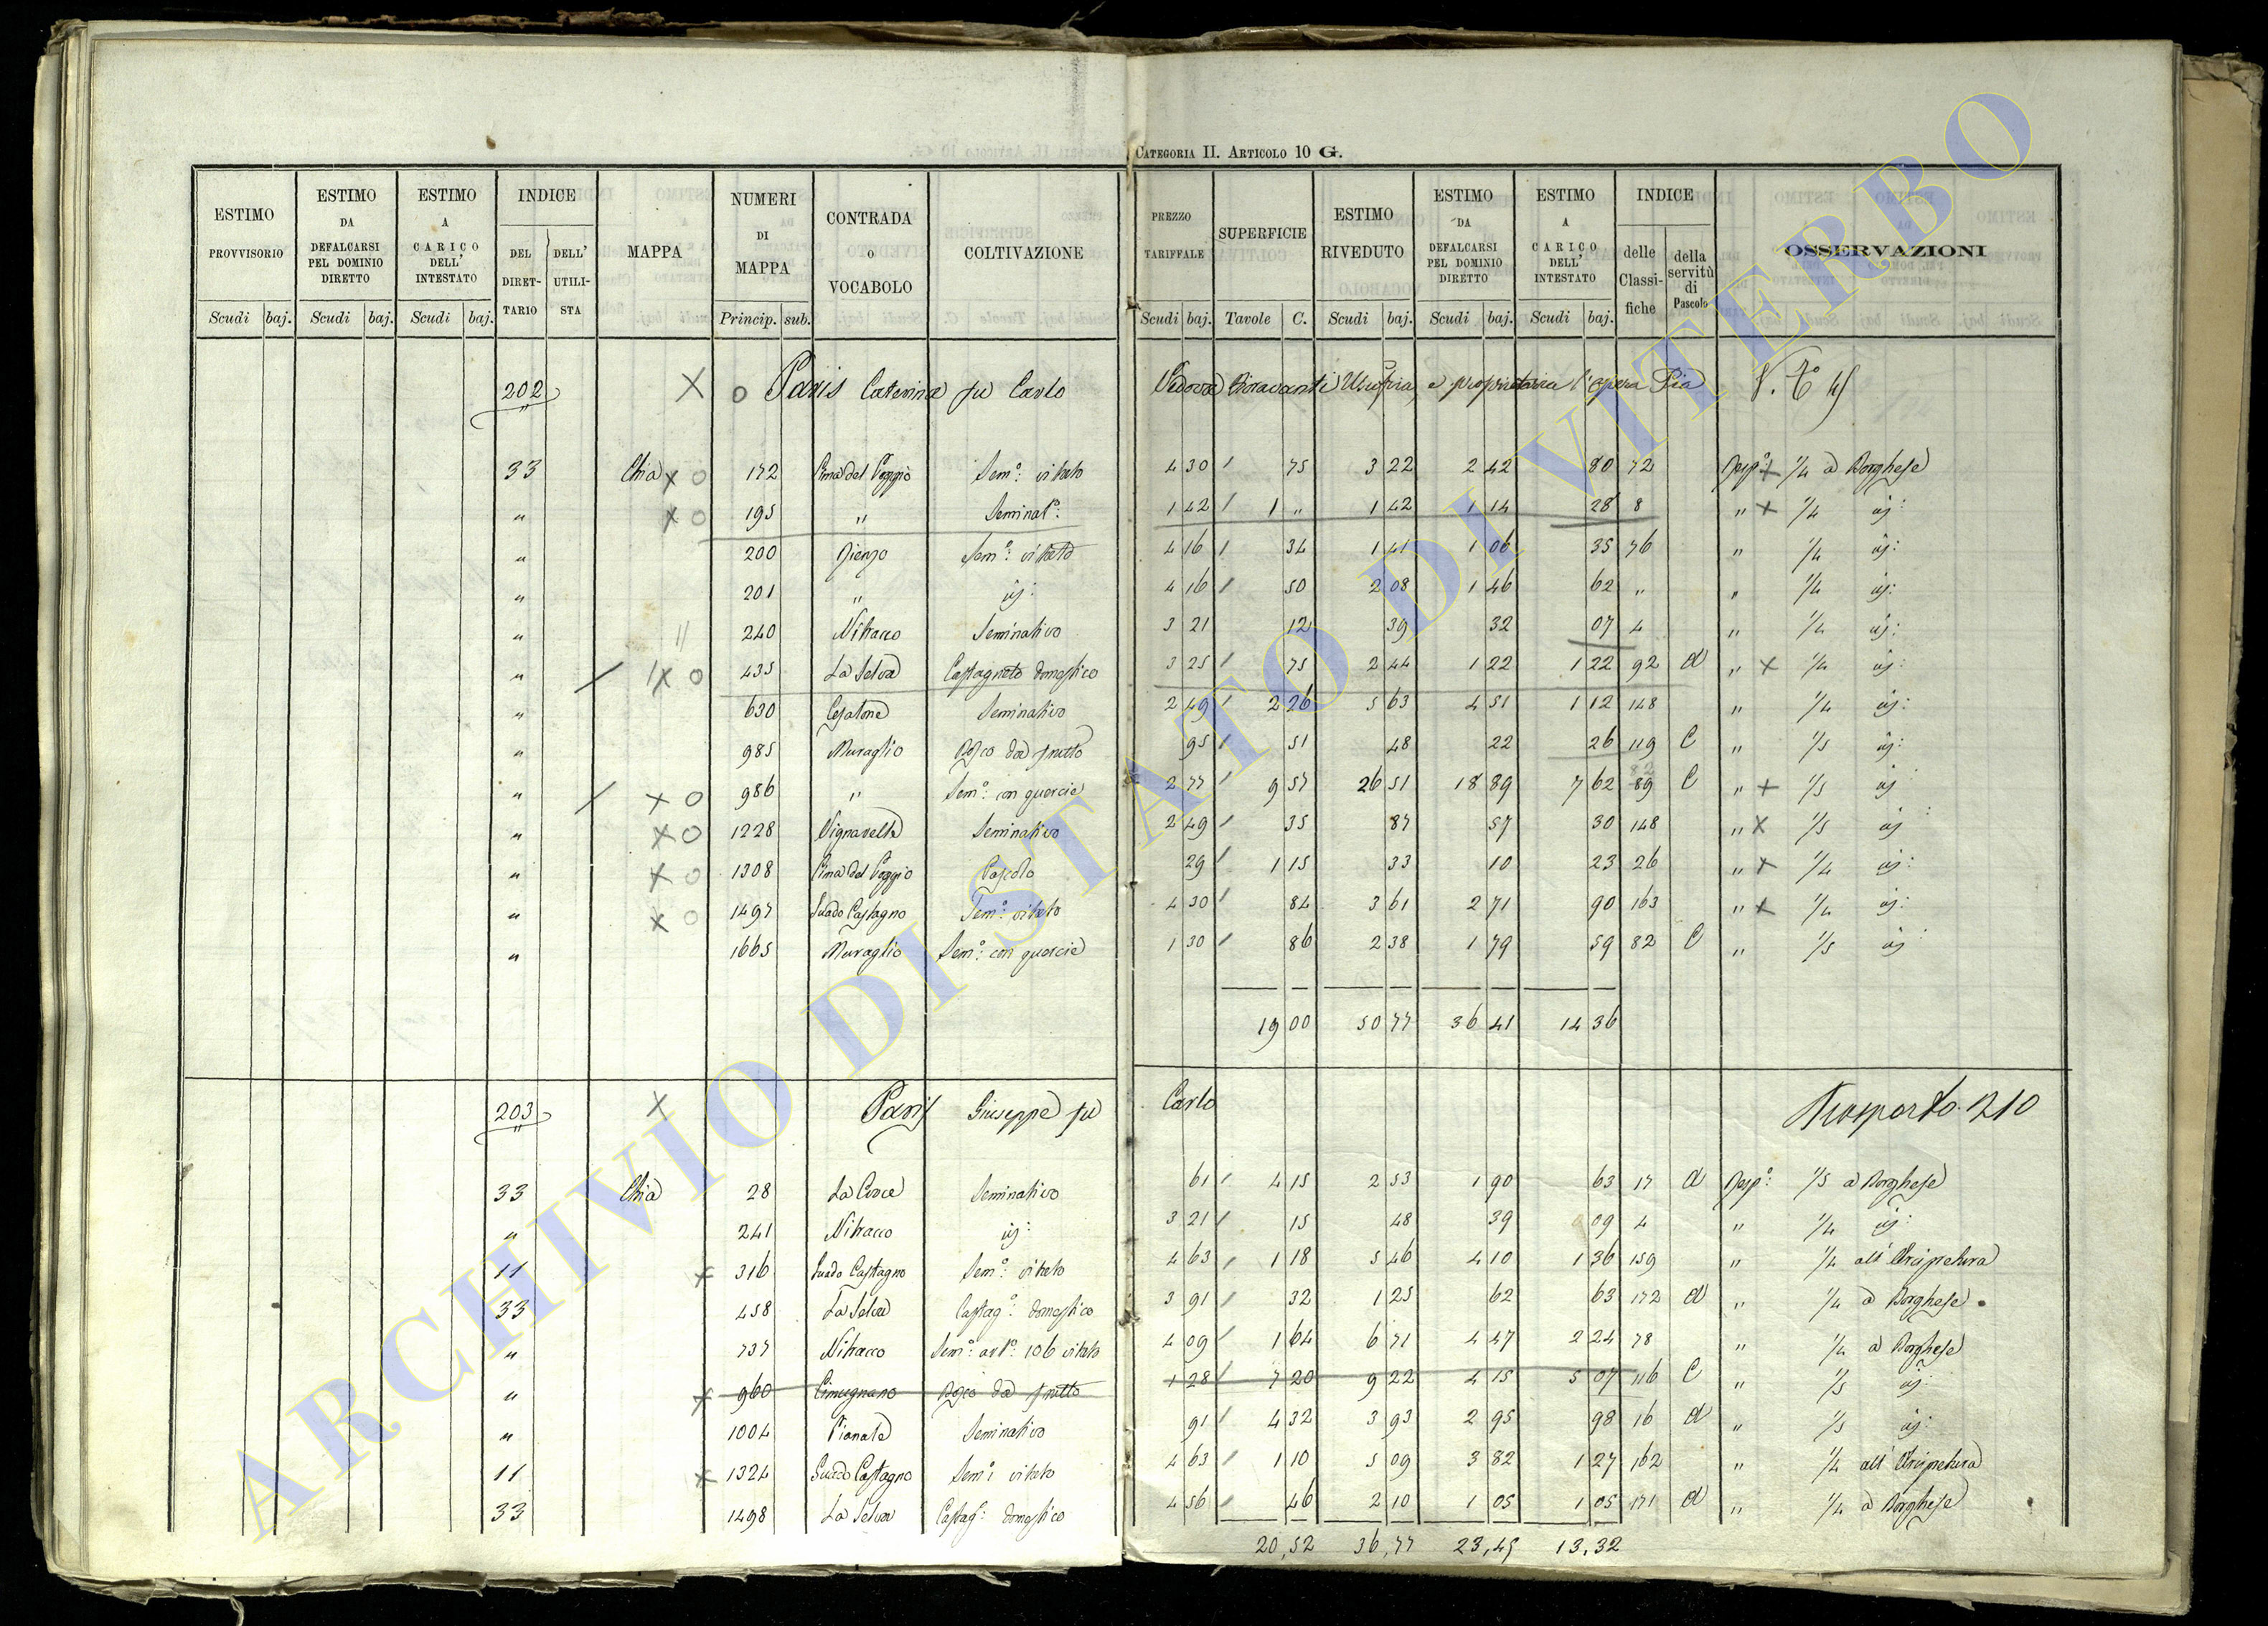 CATEGORIA II. ARTICOLO 10 G.
ESTIMO PROVVISORIO ESTIMO DA DEFALCARSI PEL DOMINIO DIRETTO ESTIMO A CARICO DELL' INTESTATO INDICE DEL DIRETTARIO DELL' UTILISTA MAPPA NUMERI DI MAPPA CONTRADA O VOCABOLO COLTIVAZIONE PREZZO TARIFFALE SUPERFICIE ESTIMO RIVEDUTO ESTIMO DA DEFALCARSI PEL DOMINIO DIRETTO ESTIMO A CARICO DELL' INTESTATO INDICE delle Classifiche della servitù di Pascolo OSSERVAZIONI
Scudi baj. Scudi baj. Scudi baj. Princip. sub. Scudi baj. Tavole C. Scudi baj. Scudi baj. Scudi baj.
202 X o Paris Caterina fu Carlo Vedova Fioravanti Usufria, e proprietaria l'opera Pia
33 Chia x o 172 Cima del Poggio Sem°: vitato 4 30 75 3 22 2 42 80 72 Risp°: x 1/4 a Borghese
" x o 195 " Seminat°: 1 42 1 " 1 42 1 14 28 8 " x 1/4 id:
" 200 Sem°: vitato 4 16 34 1 41 1 06 35 76 " 1/4 id:
" 201 " id: 4 16 50 2 08 1 46 62 " " 1/4 id:
" 240 Nitracco Seminativo 3 21 12 39 32 07 4 " 1/4 id:
" x o 435 La Selva Castagneto domestico 3 25 75 2 44 1 22 1 22 92 d " x 1/4 id:
" 630 Cesalone Seminativo 2 49 2 26 5 63 4 51 1 12 148 " 1/4 id:
" 985 Muraglio Bosco da frutto 95 51 48 22 26 119 C " 1/5 id:
" x o 986 " Sem°: con quercie 2 77 9 57 26 51 18 89 7 62 82 89 C " x 1/5 id
" x o 1228 Vignavella Seminativo 2 49 35 87 57 30 148 " x 1/5 id
" x o 1308 Cima del Poggio Pascolo 29 1 15 33 10 23 26 " x 1/4 id:
" x o 1497 Guado Castagno Sem°: vitato 4 30 84 3 61 2 71 90 163 " x 1/4 id:
" 1665 Muraglio Sem°: con quercie 1 30 86 2 38 1 79 59 82 C " 1/5 id
19 00 50 77 36 41 14 36
203 X Paris Giuseppe fu Carlo Trasporto 210
33 Chia 28 La Croce Seminativo 61 4 15 2 53 1 90 63 17 d Risp°: 1/5 a Borghese
" 241 Nitracco id: 3 21 15 48 39 09 4 " 1/4 id:
11 x 316 Guado Castagno Sem°: vitato 4 63 1 18 5 46 4 10 1 36 159 " 1/4 all'Arcipretura
33 458 La Selva Castag°: domestico 3 91 32 1 25 62 63 172 d " 1/4 a Borghese
" 737 Nitracco Sem°: art°: 106 vitato 4 09 1 64 6 71 4 47 2 24 78 " 1/4 a Borghese
" x 960 Cimugnano Bosco da frutto 1 28 7 20 9 22 4 15 5 07 116 C " 1/5 id:
" 1004 Pianale Seminativo 91 4 32 3 93 2 95 98 16 d " 1/5 id:
11 x 1324 Guado Castagno Sem°: vitato 4 63 1 10 5 09 3 82 1 27 162 " 1/4 all'Arcipretura
33 1498 La Selva Castag°: domestico 4 56 46 2 10 1 05 1 05 171 d " 1/4 a Borghese
20,52 36,77 23,45 13,32
ARCHIVIO DI STATO DI VITERBO